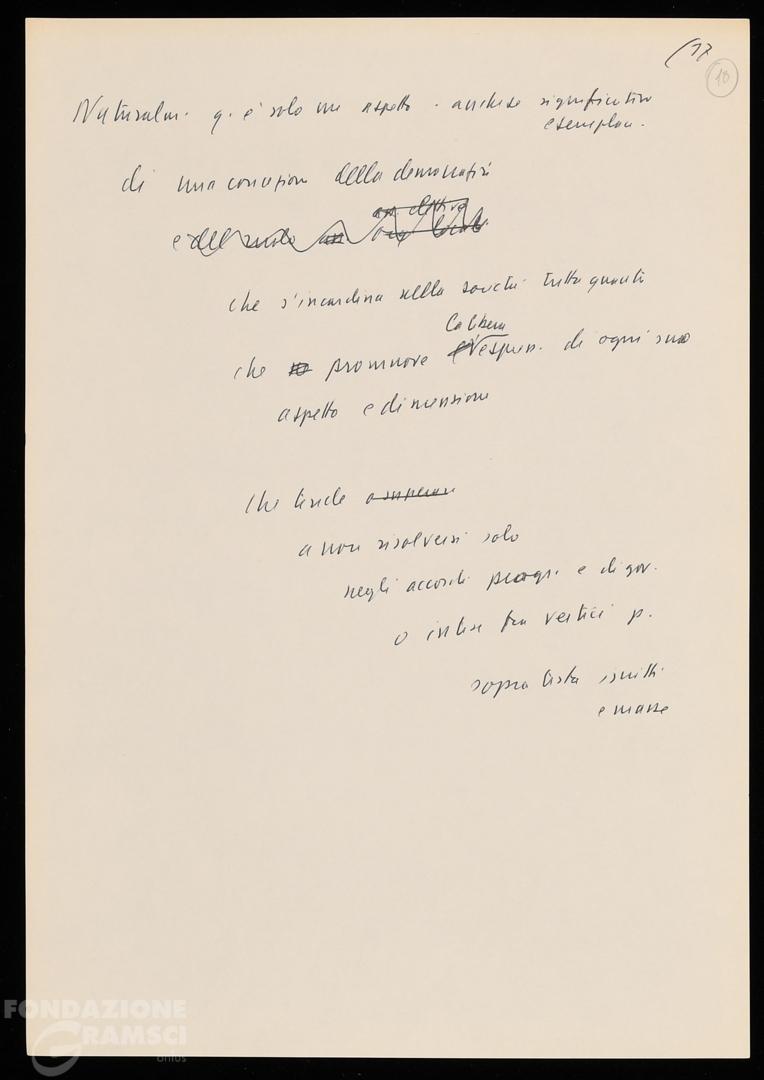 (17
18
Naturalm. q. è solo un aspetto - anch se significativo
esemplare.
di una concezione della democrazia
e del ruolo
che s'incardina nella società tutta quanta
la libera
che promuove l'espress. di ogni suo
aspetto e dimensione
che tende
a non risolversi solo
negli accordi progr. e di gov.
o intese fra vertici p.
sopra testa iscritti
e masse
FONDAZIONE
GRAMSCI
onlus